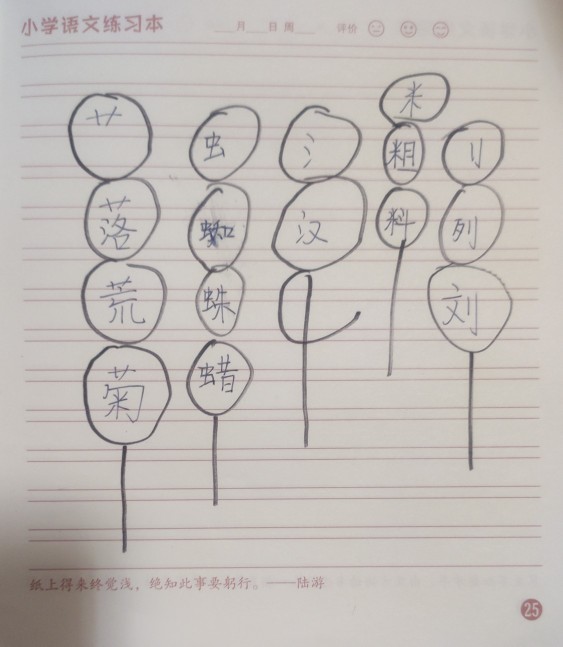 小学语文练习本 月 日 周 评价
艹
落
荒
菊
虫
蜘
蛛
蜡
氵
汉
米
粗
料
刂
列
刘
纸上得来终觉浅，绝知此事要躬行。——陆游
25